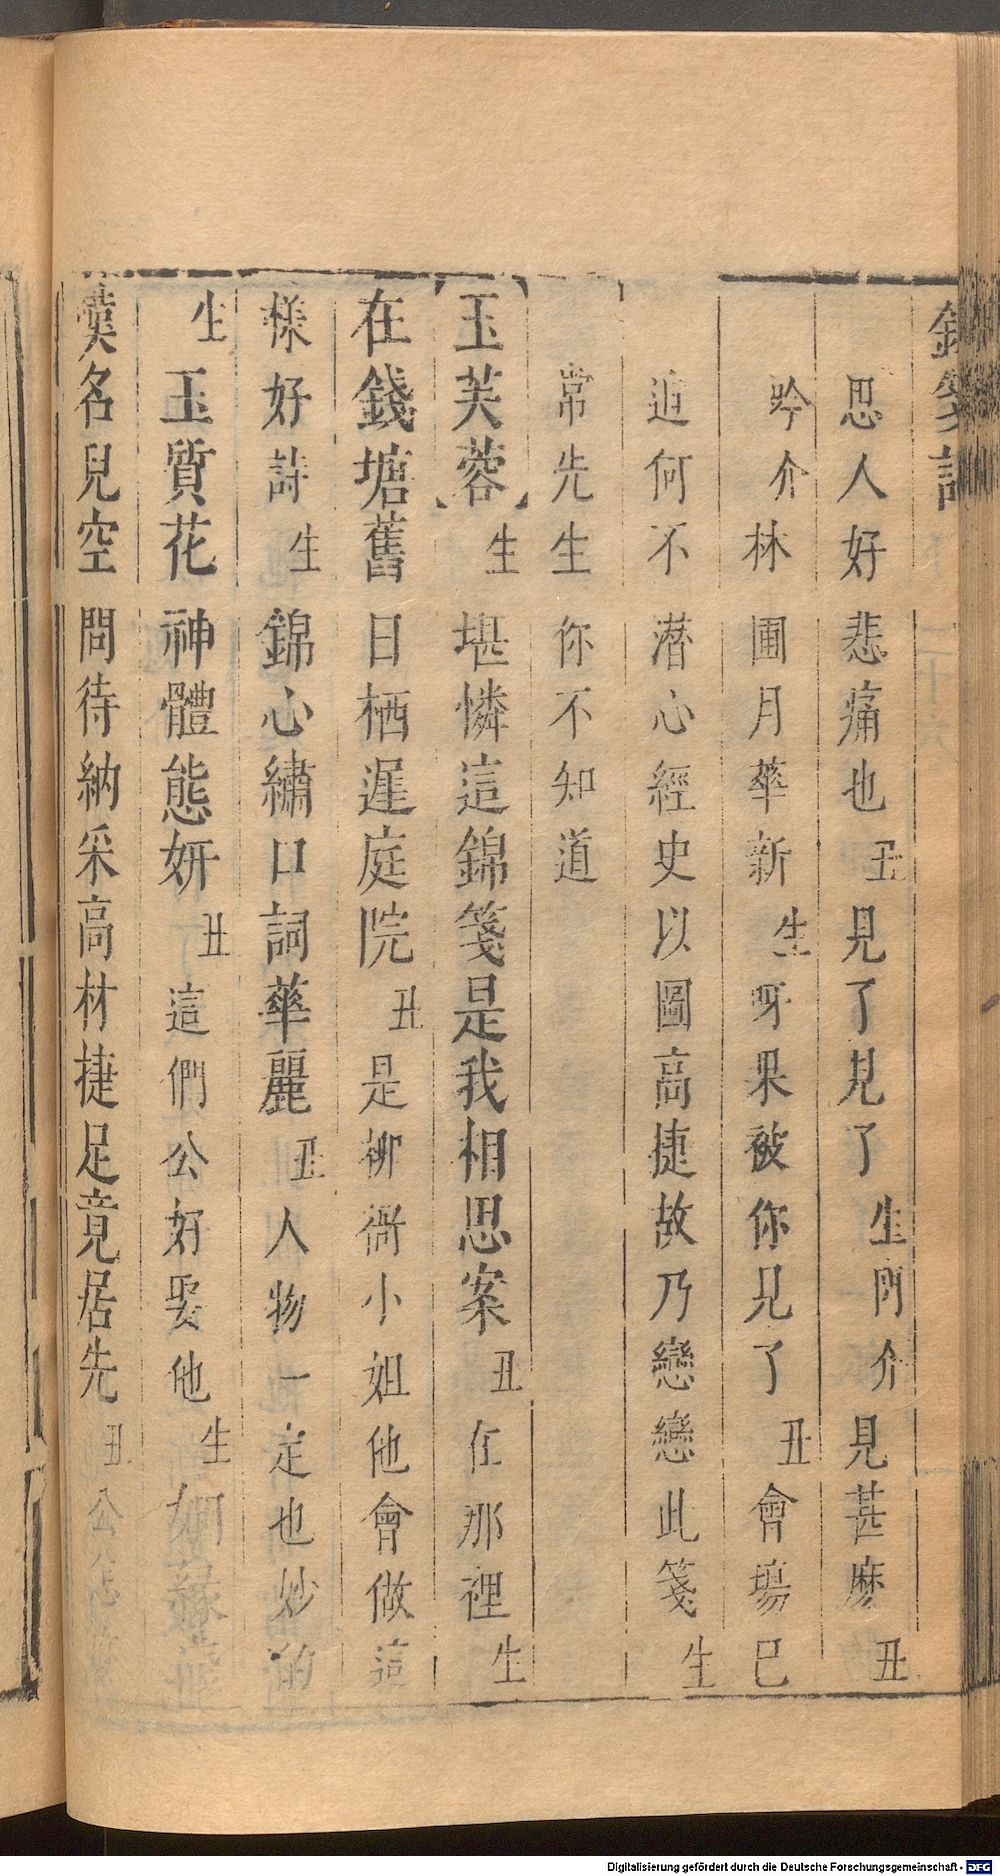 錦箋記
思人好悲痛也丑見了見了生閃介見甚麽丑
吟介林圃月華新生呀果被你見了丑會塲已
逈何不潜心經史以圖高捷故乃戀戀此箋生
常先生你不知道
【玉芙蓉】生堪憐這錦箋是我相思案丑在那裡生
在錢塘舊日栖遲庭院丑是柳衙小姐他會做這
樣好詩生錦心繡口詞華麗丑人物一定也妙的
生玉質花神體態妍丑這們公好娶他生姻
名兒空問待納采高材捷足竟居先丑公
Digitalisierung gefördert durch die Deutsche Forschungsgemeinschaft - DFG